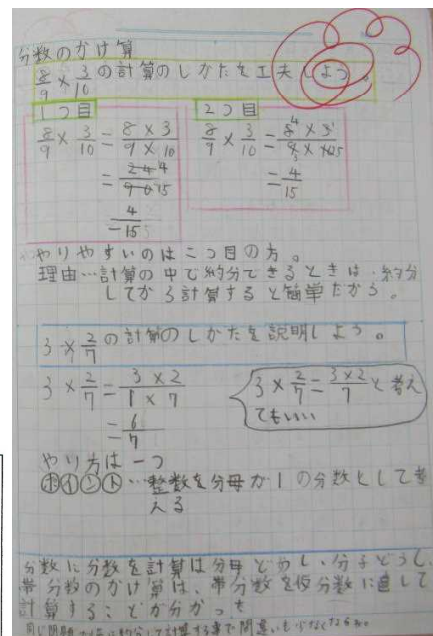 分数のかけ算
8/9 × 3/10 の計算のしかたを工夫しよう。
1つ目 2つ目
8/9 × 3/10 = 8×3/9×10 8/9 × 3/10 = 8×3/9×10
= 24/90 = 4/15
4/15
やりやすいのは二つ目の方。
理由…計算の中で約分できるときは、約分
してから計算すると簡単だから。
3×2/7の計算のしかたを説明しよう。
3×2/7 = 3×2/1×7
= 6/7
3×2/7 = 3×2/7と考え
てもいい
やり方は一つ
ポイント…整数を分母が1の分数として考
える
分数に分数を計算は分母どうし、分子どうし、
帯分数のかけ算は、帯分数を仮分数に直して
計算することが分かった